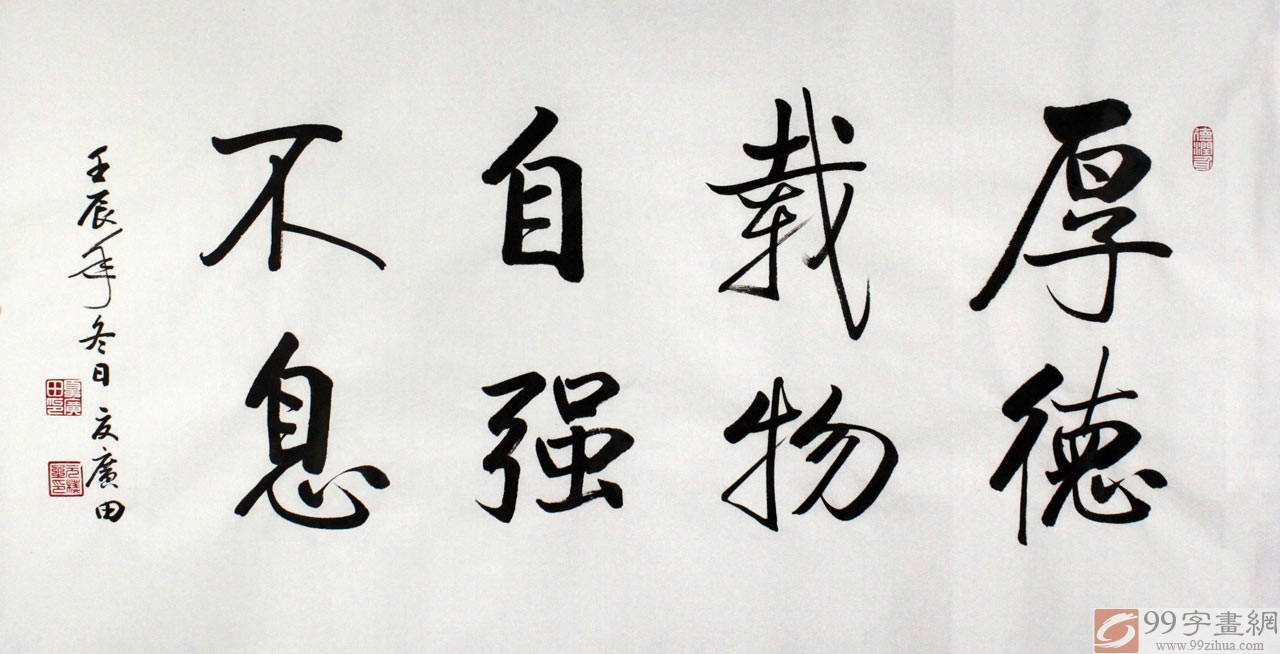 厚德
载物
自强
不息
壬辰年冬日夏廣田
99字畫網
www.99zihua.com